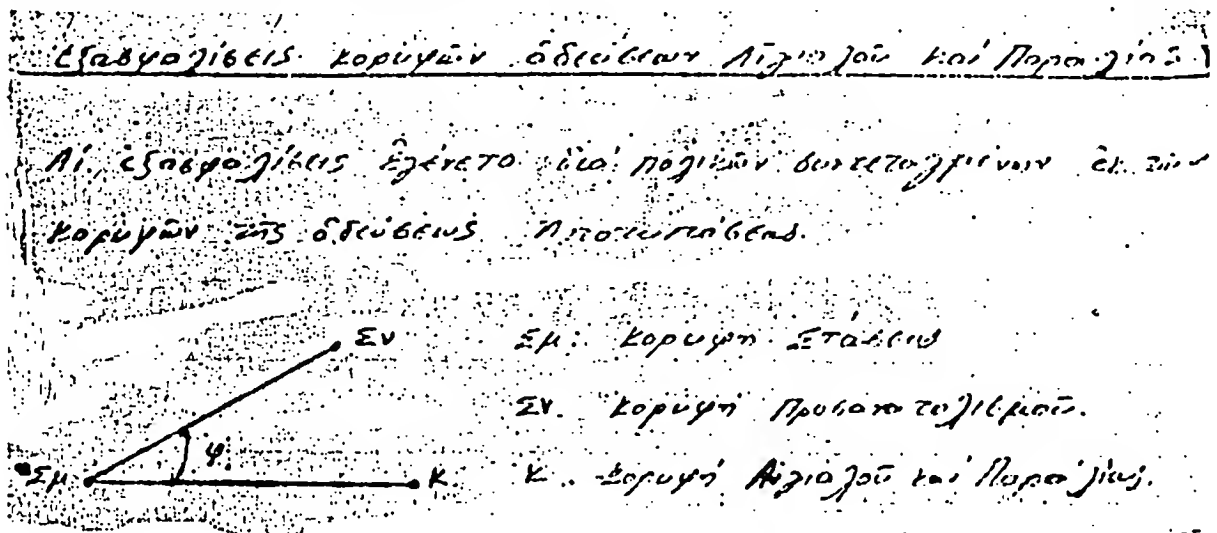 Ἐξασφαλίσεις κορυφῶν ὁδεύσεων Αἰγιαλοῦ καί Παραλίας
Αἱ ἐξασφαλίσεις ἐγένετο διά πολικῶν συντεταγμένων ἐκ τῶν
κορυφῶν τῆς ὁδεύσεως Ἀποτυπώσεως.
Σν
Σμ: Κορυφή Στάσεως
Σν. Κορυφή Προσανατολισμοῦ.
φ.
Σμ K K. Κορυφή Αἰγιαλοῦ καί Παραλίας.